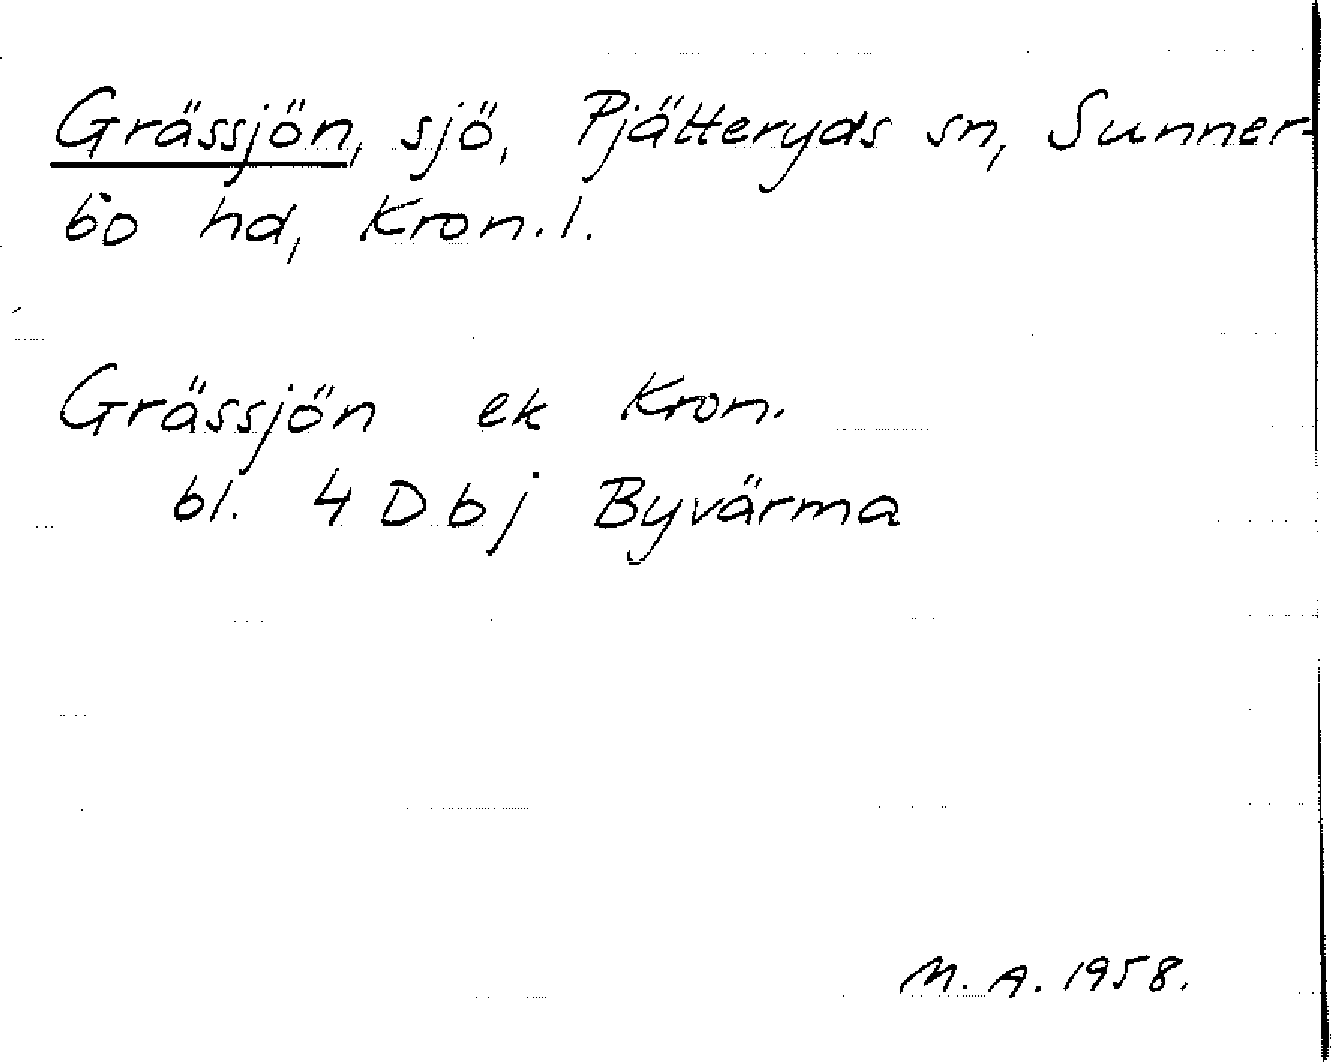 Grässjön, sjö, Pjätteryds sn, Sunner-
bo hd, Kron. l.
Grässjön ek Kron.
bl. 4 D b j Byvärma
M. A. 1958.